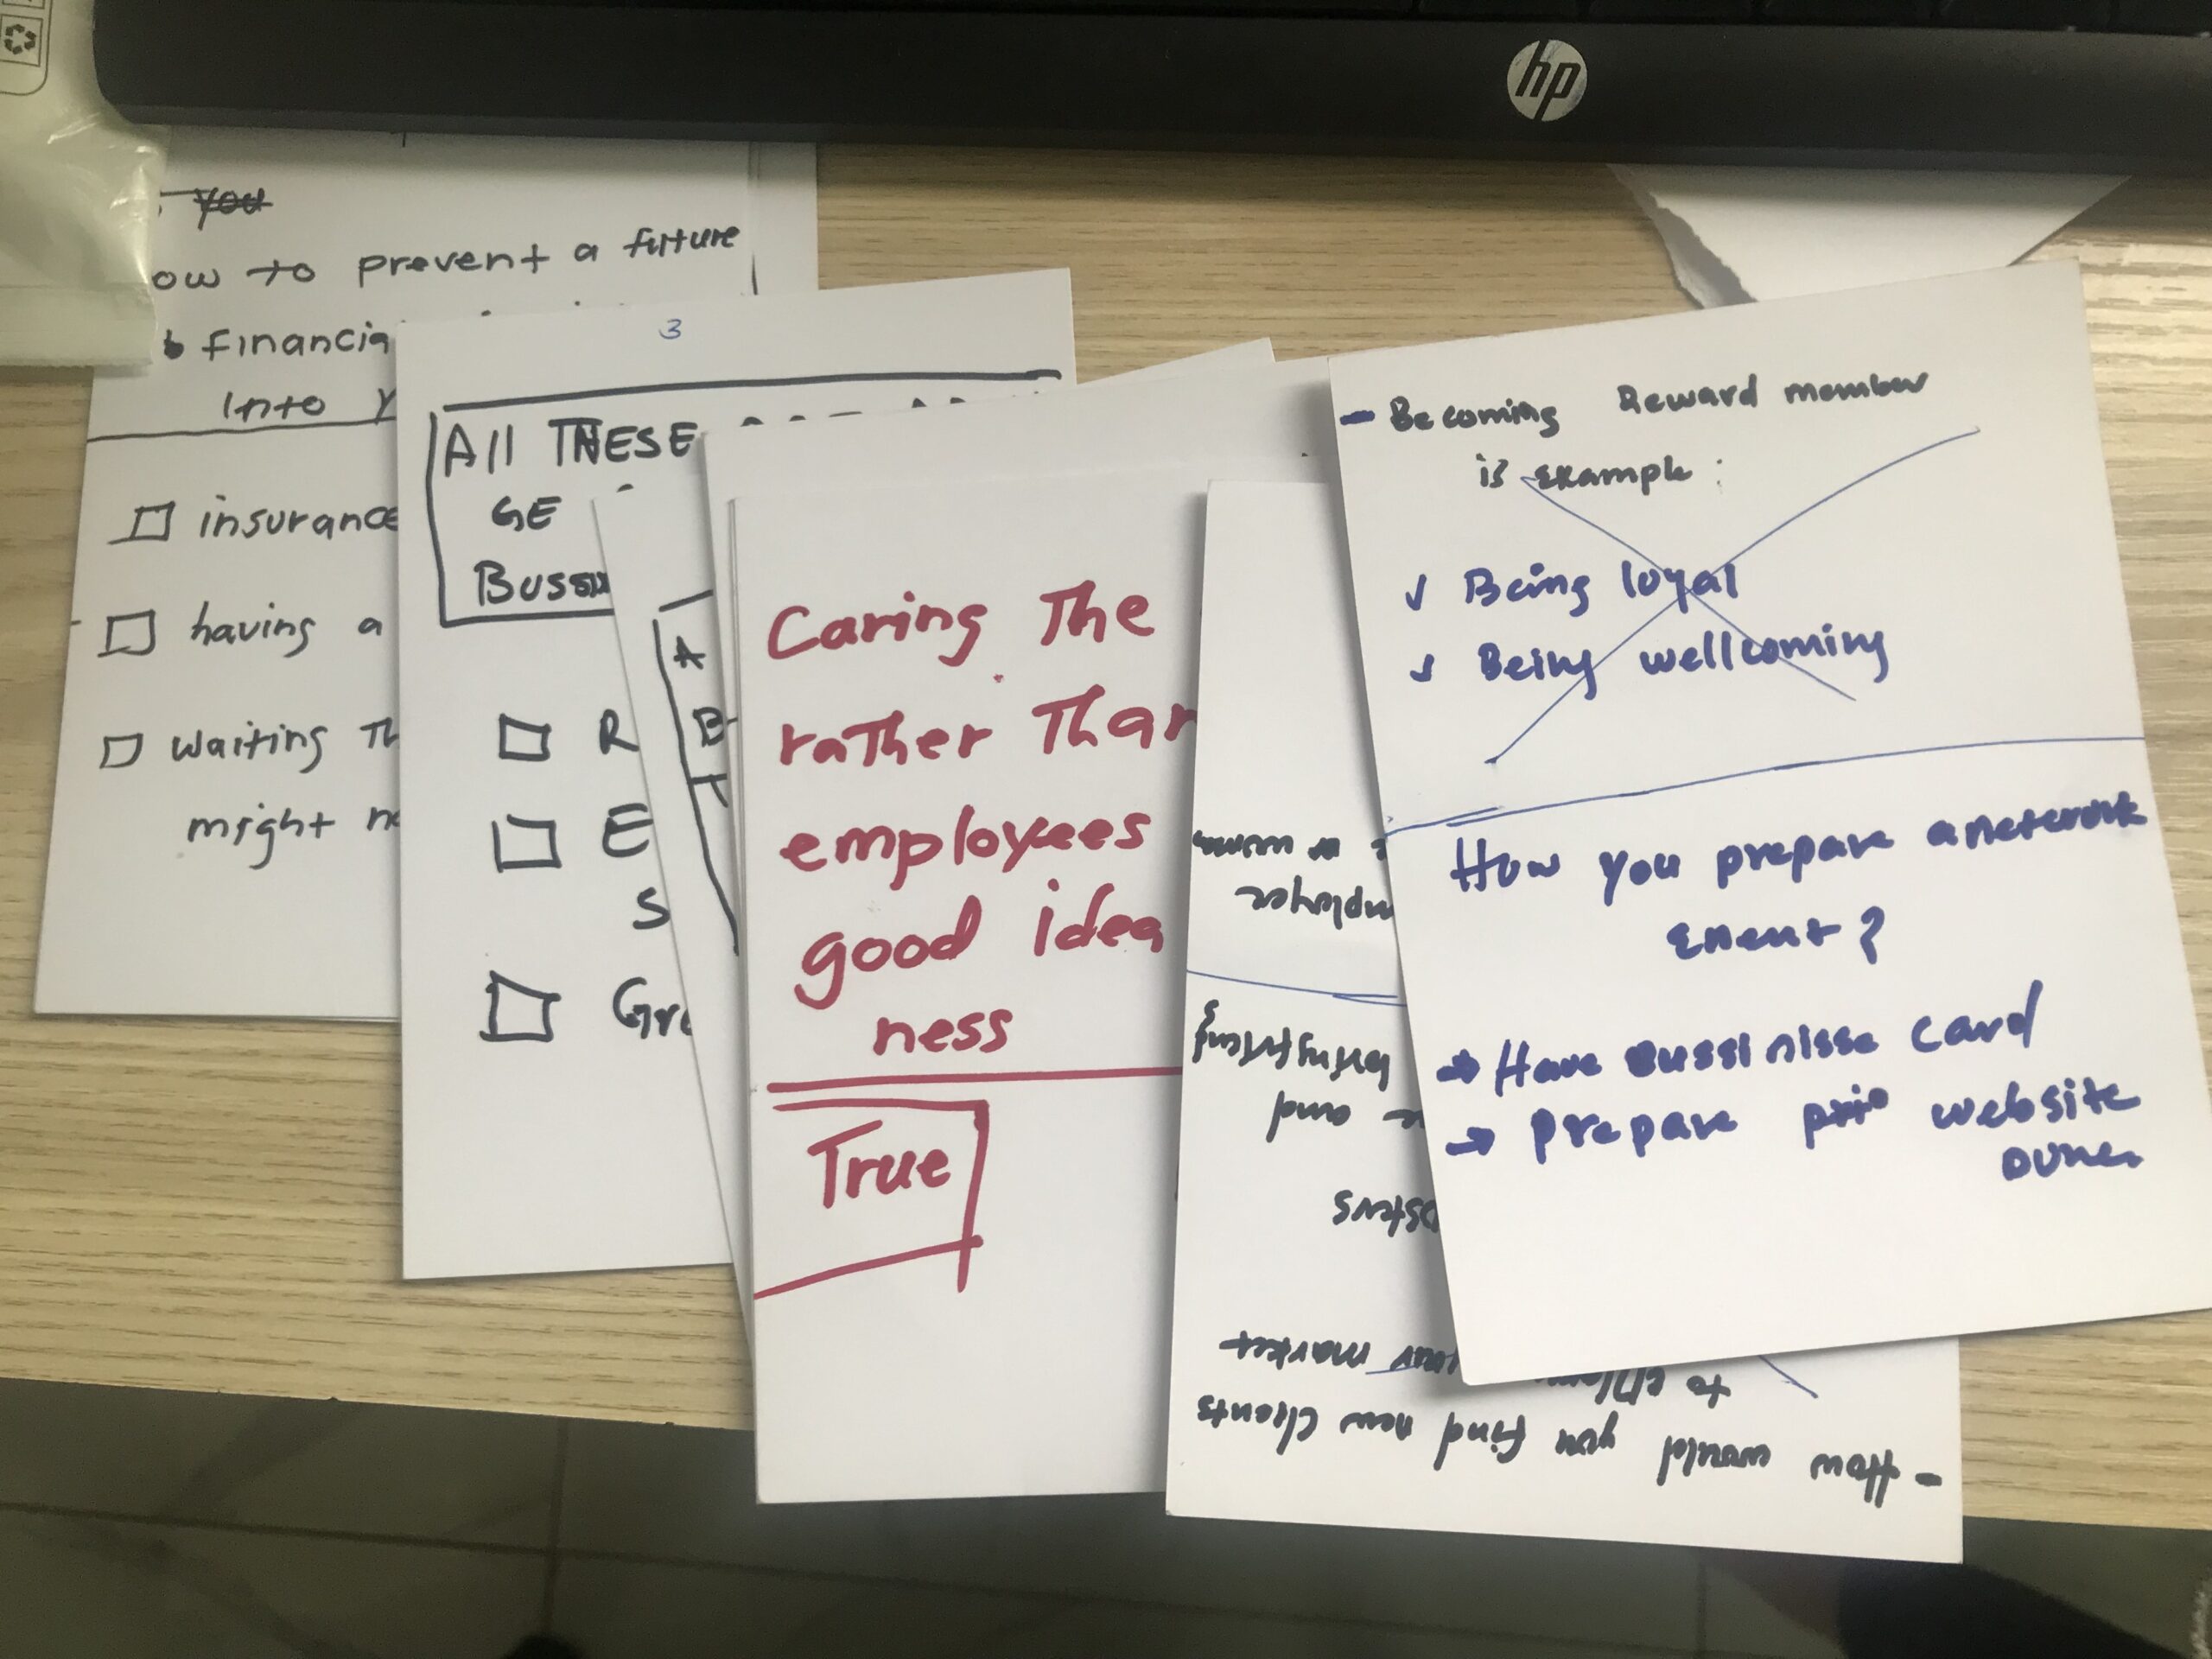 hp
you
ow to prevent a future
financia
Into Y
insurance
having a
waiting Th
might no
3
All THESE
GE
Bussin
R
E
S
Gre
A
B
T
Caring The
rather Than
employees
good idea
ness
True
- Becoming Reward member
is Example :
✓ Being loyal
✓ Being wellcoming
How you prepare a network
Enent?
→ Have Bussinisse card
→ Prepare prio website
owner
- How would you find new clients
to your market
osters
and
bringfring
mployee